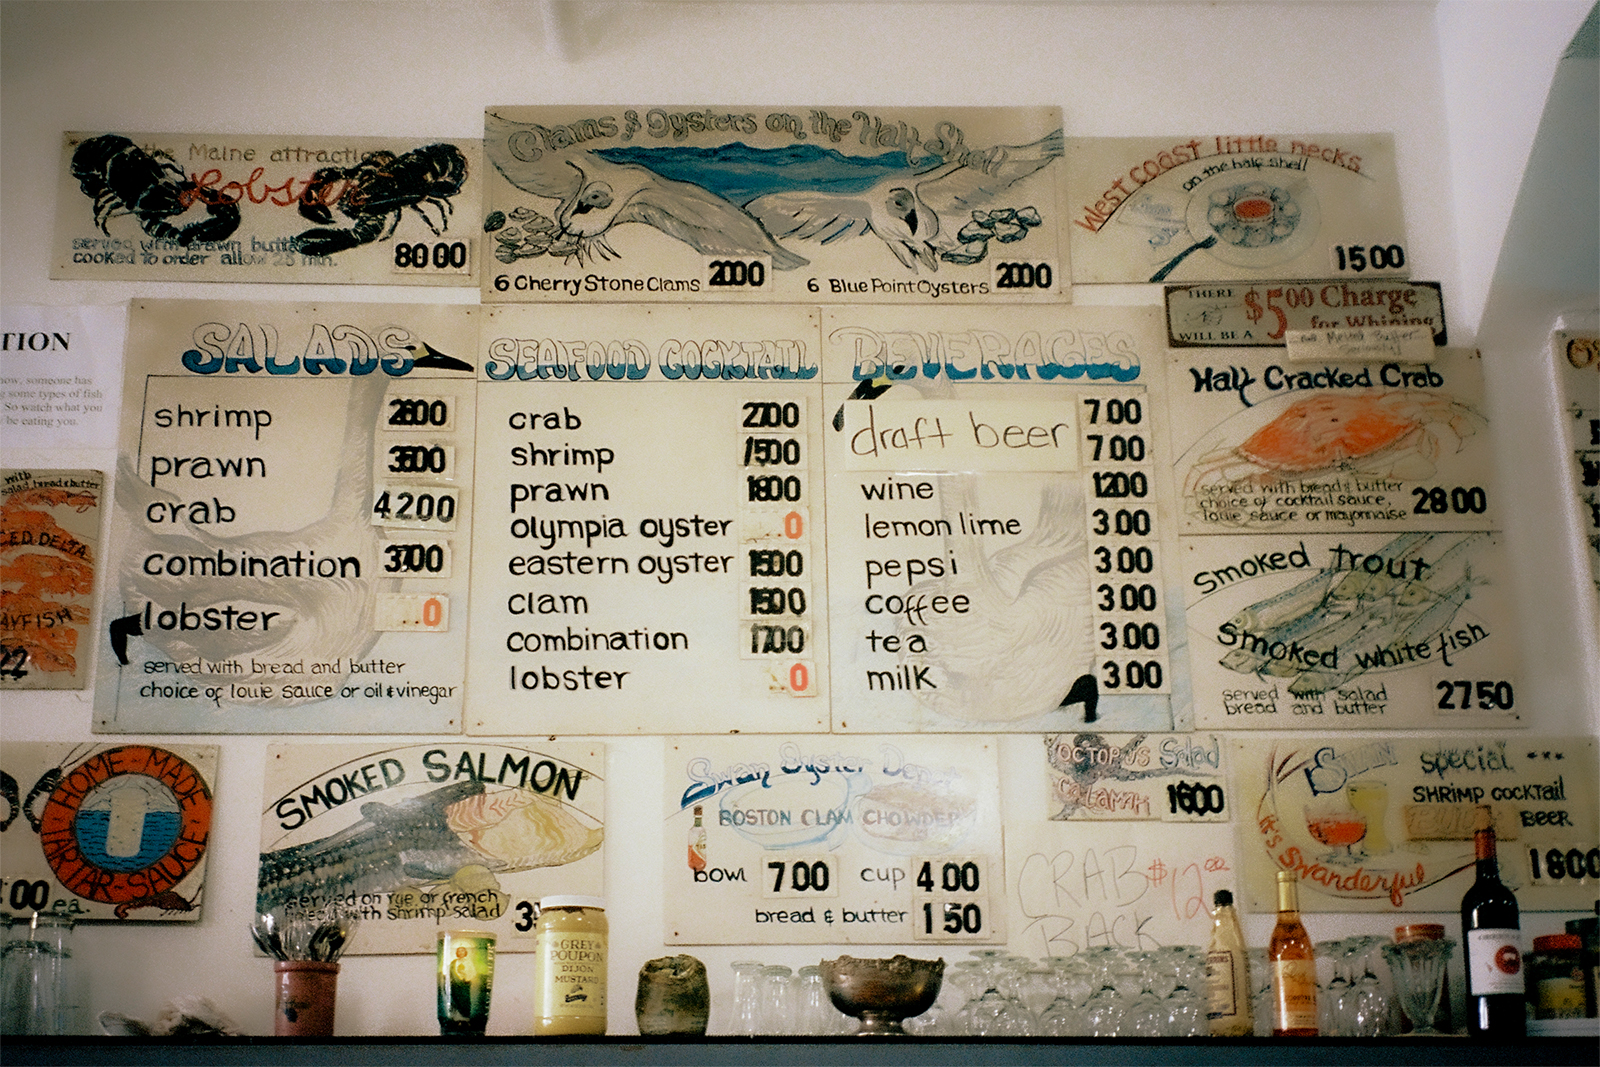 the Maine attraction
Lobster
served with drawn butter
cooked to order allow 25 min.
80 00
Clams & Oysters on the Half Shell
6 Cherry Stone Clams 20 00
6 Blue Point Oysters 20 00
West coast little necks
on the half shell
15 00
THERE
WILL BE A
$5.00 Charge
for Whining
TION
now, someone has
g some types of fish
So watch what you
be eating you.
SALADS
shrimp
prawn
crab 42 00
combination
lobster ..0
served with bread and butter
choice of louie sauce or oil & vinegar
SEAFOOD COCKTAIL
crab
shrimp 15 00
prawn 18 00
olympia oyster ..0
eastern oyster 15 00
clam 15 00
combination 17 00
lobster ..0
BEVERAGES
draft beer
7 00
7 00
wine 12 00
lemon lime 3 00
pepsi 3 00
coffee 3 00
tea 3 00
milk 3 00
Half Cracked Crab
served with bread & butter
choice of cocktail sauce,
louie sauce or mayonnaise
28 00
Smoked Trout
Smoked white fish
served with salad
bread and butter
27 50
with
salad, bread & butter
CED. DELTA
AYFISH
22
HOME-MADE
TARTAR-SAUCE
:00 ea.
SMOKED SALMON
served on rye or french
bread with shrimp salad
Swan Oyster Depot
BOSTON CLAM CHOWDER
bowl 7 00 cup 4 00
bread & butter 1 50
OCTOPUS Salad
CALAMARI
16 00
CRAB $12.00
BACK
SWAN special
SHRIMP COCKTAIL
BEER
it's Swanderful
18 00
GREY
POUPON
DIJON
MUSTARD